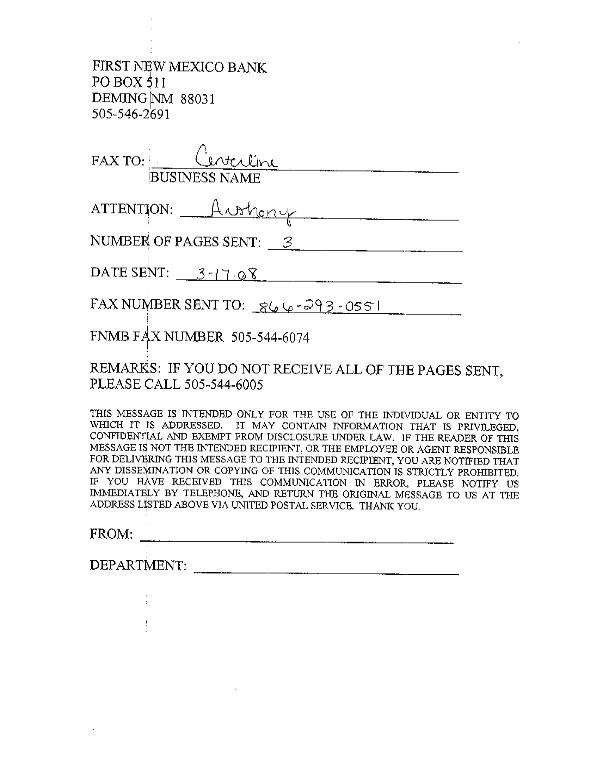 FIRST NEW MEXICO BANK
PO BOX 511
DEMING NM 88031
505-546-2691
FAX TO: Centerline
BUSINESS NAME
ATTENTION: Anthony
NUMBER OF PAGES SENT: 3
DATE SENT: 3-17-08
FAX NUMBER SENT TO: 866-293-0551
FNMB FAX NUMBER 505-544-6074
REMARKS: IF YOU DO NOT RECEIVE ALL OF THE PAGES SENT,
PLEASE CALL 505-544-6005
THIS MESSAGE IS INTENDED ONLY FOR THE USE OF THE INDIVIDUAL OR ENTITY TO
WHICH IT IS ADDRESSED. IT MAY CONTAIN INFORMATION THAT IS PRIVILEGED,
CONFIDENTIAL AND EXEMPT FROM DISCLOSURE UNDER LAW. IF THE READER OF THIS
MESSAGE IS NOT THE INTENDED RECIPIENT, OR THE EMPLOYEE OR AGENT RESPONSIBLE
FOR DELIVERING THIS MESSAGE TO THE INTENDED RECIPIENT, YOU ARE NOTIFIED THAT
ANY DISSEMINATION OR COPYING OF THIS COMMUNICATION IS STRICTLY PROHIBITED.
IF YOU HAVE RECEIVED THIS COMMUNICATION IN ERROR, PLEASE NOTIFY US
IMMEDIATELY BY TELEPHONE, AND RETURN THE ORIGINAL MESSAGE TO US AT THE
ADDRESS LISTED ABOVE VIA UNITED POSTAL SERVICE. THANK YOU.
FROM:
DEPARTMENT: